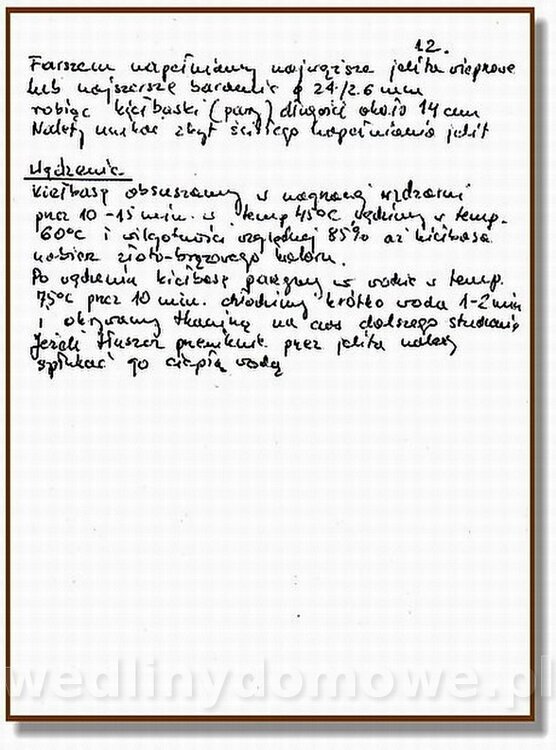 12.
Farszem napełniamy najwęższe jelita wieprzowe
lub najszersze baranie φ 24/26 mm
robiąc kiełbaski (pary) długości około 14 cm
Należy unikać zbyt ścisłego napełniania jelit
Wędzenie.
Kiełbasę obsuszamy w nagrzanej wędzarni
przez 10-15 min. w temp 45°C, wędzimy w temp.
60°C i wilgotności względnej 85% aż kiełbasa
nabierze złoto-brązowego koloru.
Po wędzeniu kiełbasę parzymy w wodzie w temp.
75°C przez 10 min. chłodzimy krótko wodą 1-2 min
i okrywamy tkaniną na czas dalszego studzenia
Jeżeli tłuszcz przeniknie przez jelita należy
spłukać go ciepłą wodą
wedlinydomowe.pl